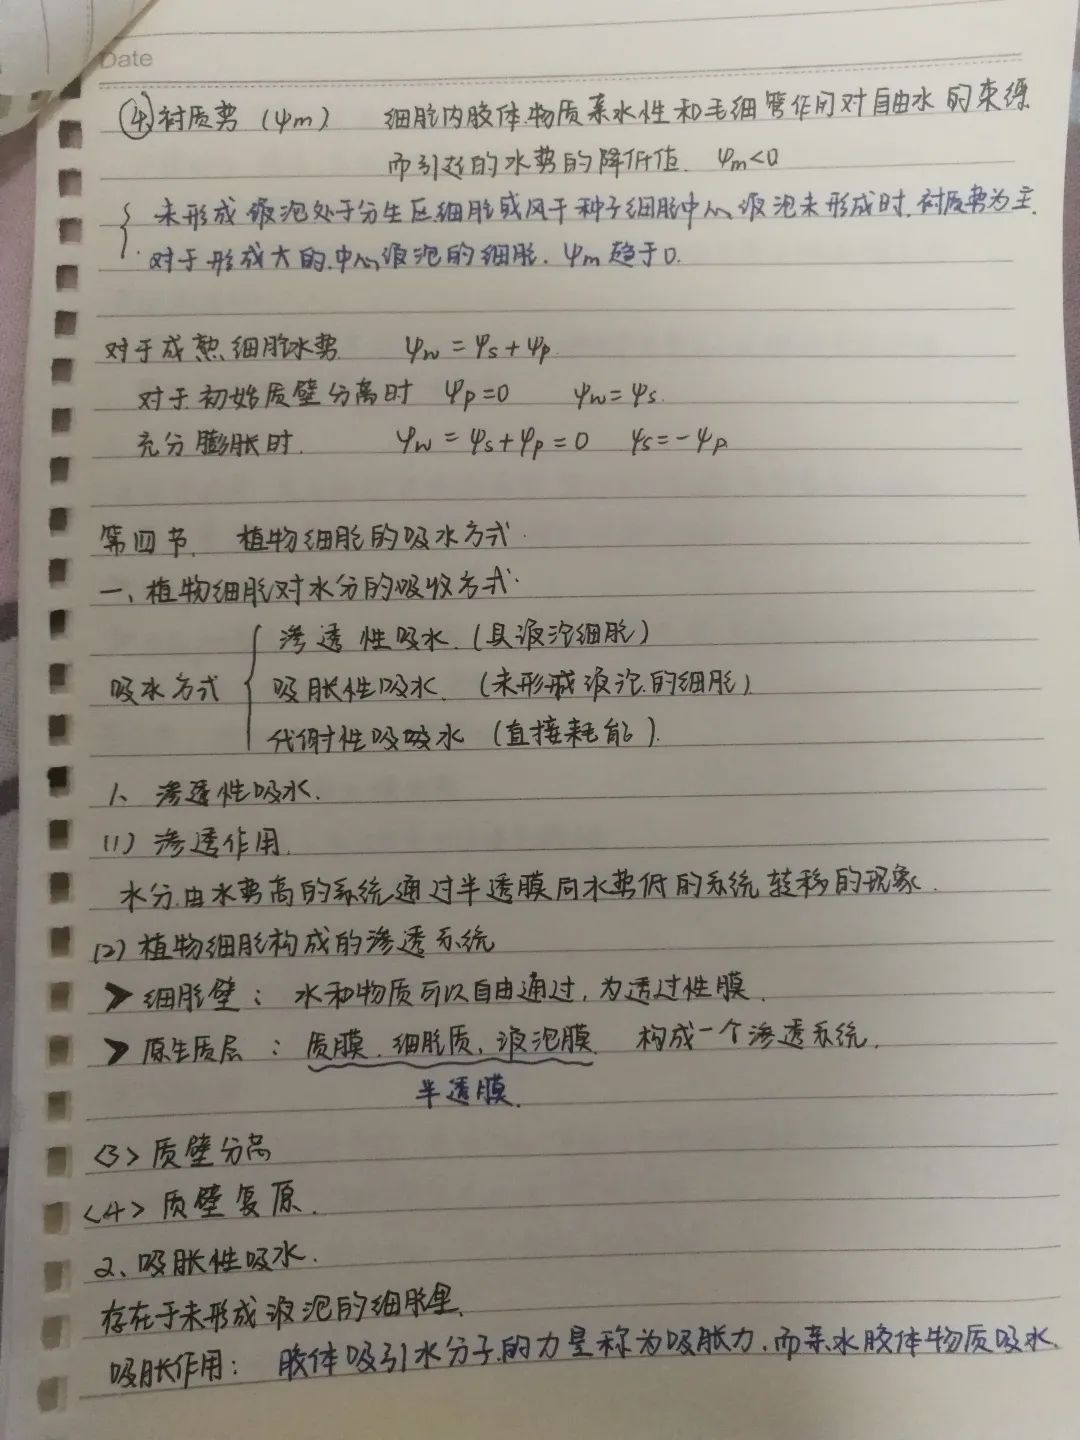 Date
④衬质势 (ψm) 细胞内胶体物质亲水性和毛细管作用对自由水的束缚
而引起的水势的降低值. ψm<0
{ 未形成液泡处于分生区细胞或风干种子细胞中心液泡未形成时.衬质势为主.
对于形成大的中心液泡的细胞. ψm趋于0.
对于成熟细胞水势 ψw=ψs+ψp
对于初始质壁分离时 ψp=0 ψw=ψs.
充分膨胀时. ψw=ψs+ψp=0 ψs=-ψp
第四节. 植物细胞的吸水方式.
一、植物细胞对水分的吸收方式.
吸水方式 { 渗透性吸水.(具液泡细胞)
吸胀性吸水.(未形成液泡的细胞)
代谢性吸吸水 (直接耗能).
1、渗透性吸水.
(1) 渗透作用.
水分由水势高的系统通过半透膜向水势低的系统转移的现象.
(2) 植物细胞构成的渗透系统
➤ 细胞壁: 水和物质可以自由通过,为透过性膜.
➤ 原生质层: 质膜.细胞质、液泡膜. 构成一个渗透系统.
半透膜.
<3> 质壁分离
<4> 质壁复原.
2、吸胀性吸水.
存在于未形成液泡的细胞里.
吸胀作用: 胶体吸引水分子的力量称为吸胀力.而亲水胶体物质吸水.